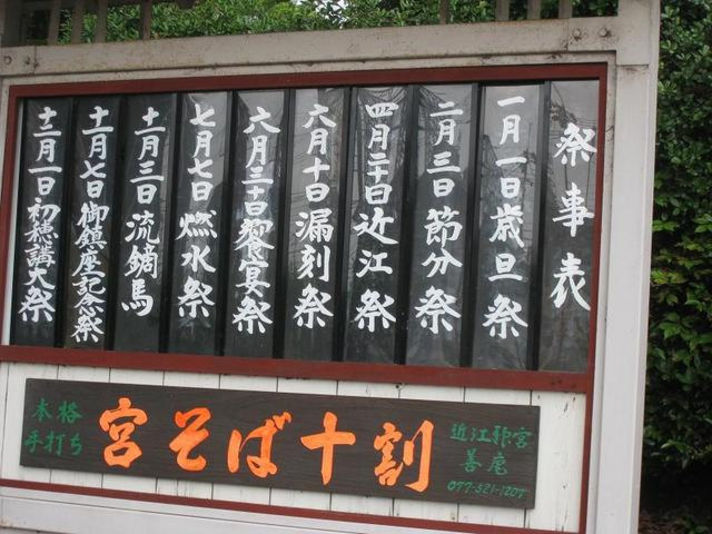 祭事表
一月一日歳旦祭
二月三日節分祭
四月二十日近江祭
六月十日漏刻祭
六月三十日饗宴祭
七月七日燃水祭
十一月三日流鏑馬
十一月七日御鎮座記念祭
十二月一日初穂講大祭
本格
手打ち
宮そば十割
近江神宮
善庵
077-521-1207